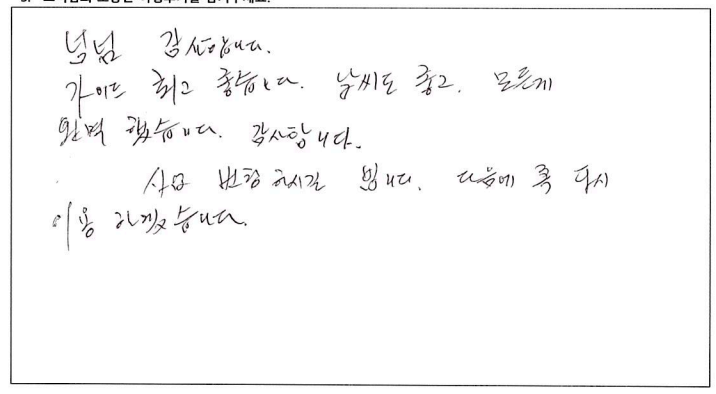 넘넘 감사합니다.
가이드 최고 좋습니다. 날씨도 좋고. 모든게
완벽 했습니다. 감사합니다.
사업 번창 하시길 빕니다. 다음에 꼭 다시
이용 하겠습니다.